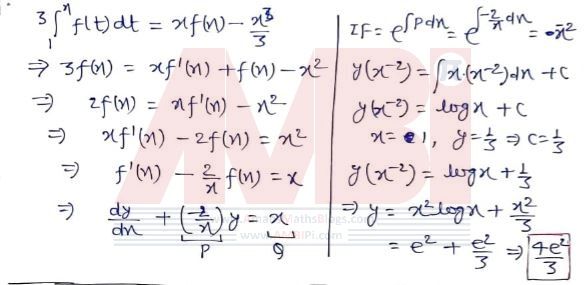 3∫₁ˣ f(t)dt = xf(x) - x³/3
⇒ 3f(x) = xf'(x) + f(x) - x²
⇒ 2f(x) = xf'(x) - x²
⇒ xf'(x) - 2f(x) = x²
⇒ f'(x) - 2/x f(x) = x
⇒ dy/dx + (-2/x) y = x
P Q
IF = e^∫Pdx = e^∫-2/x dx = x⁻²
y(x⁻²) = ∫x·(x⁻²)dx + C
y(x⁻²) = logx + C
x = 1, y = 1/3 ⇒ C = 1/3
y(x⁻²) = logx + 1/3
⇒ y = x²logx + x²/3
= e² + e²/3 ⇒ 4e²/3
AMBI
MathsBlogs.com
www.AMBIPi.com